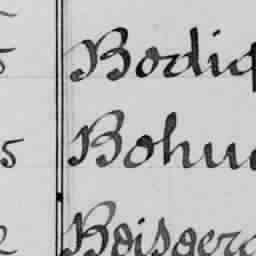 5 Bodig
5 Bohu
Boisger